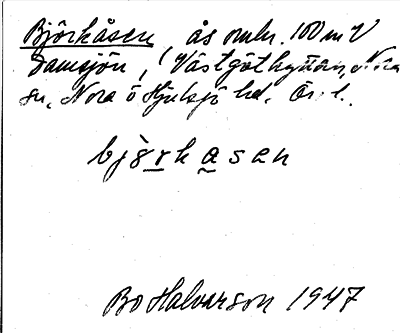 Björkåsen, ås omkr. 100 m V
Damsjön, Västgöthyttan, Nora
sn, Nora o Hjulsjö hd. Ör. l.
björkasen
Bo Halvarson 1947